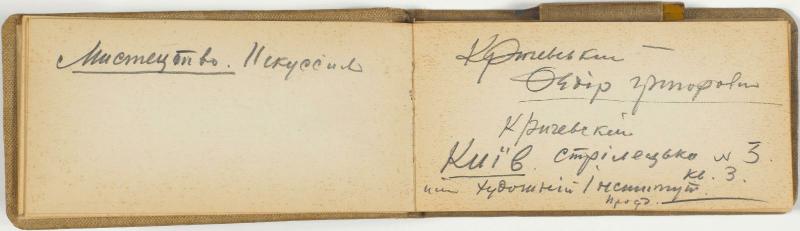 Мистецтво. Искуссил
Кричевський
Федір Григорович
Крічевскій
Київ. стрілецька N 3.
кв. 3.
или Художній Інститут.
проф.